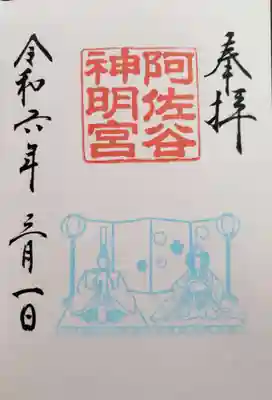 奉拝
阿佐谷
神明宮
令和六年 三月一日